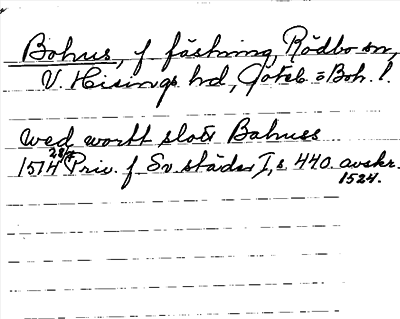 Bohus, f fästning, Rödbo sn,
V. Hisings hd, Göteb. o Boh. l.
wed wortt slott Bahuss
1514 28/7 Priv. f Sv städer I, s 440. avskr.
1524.